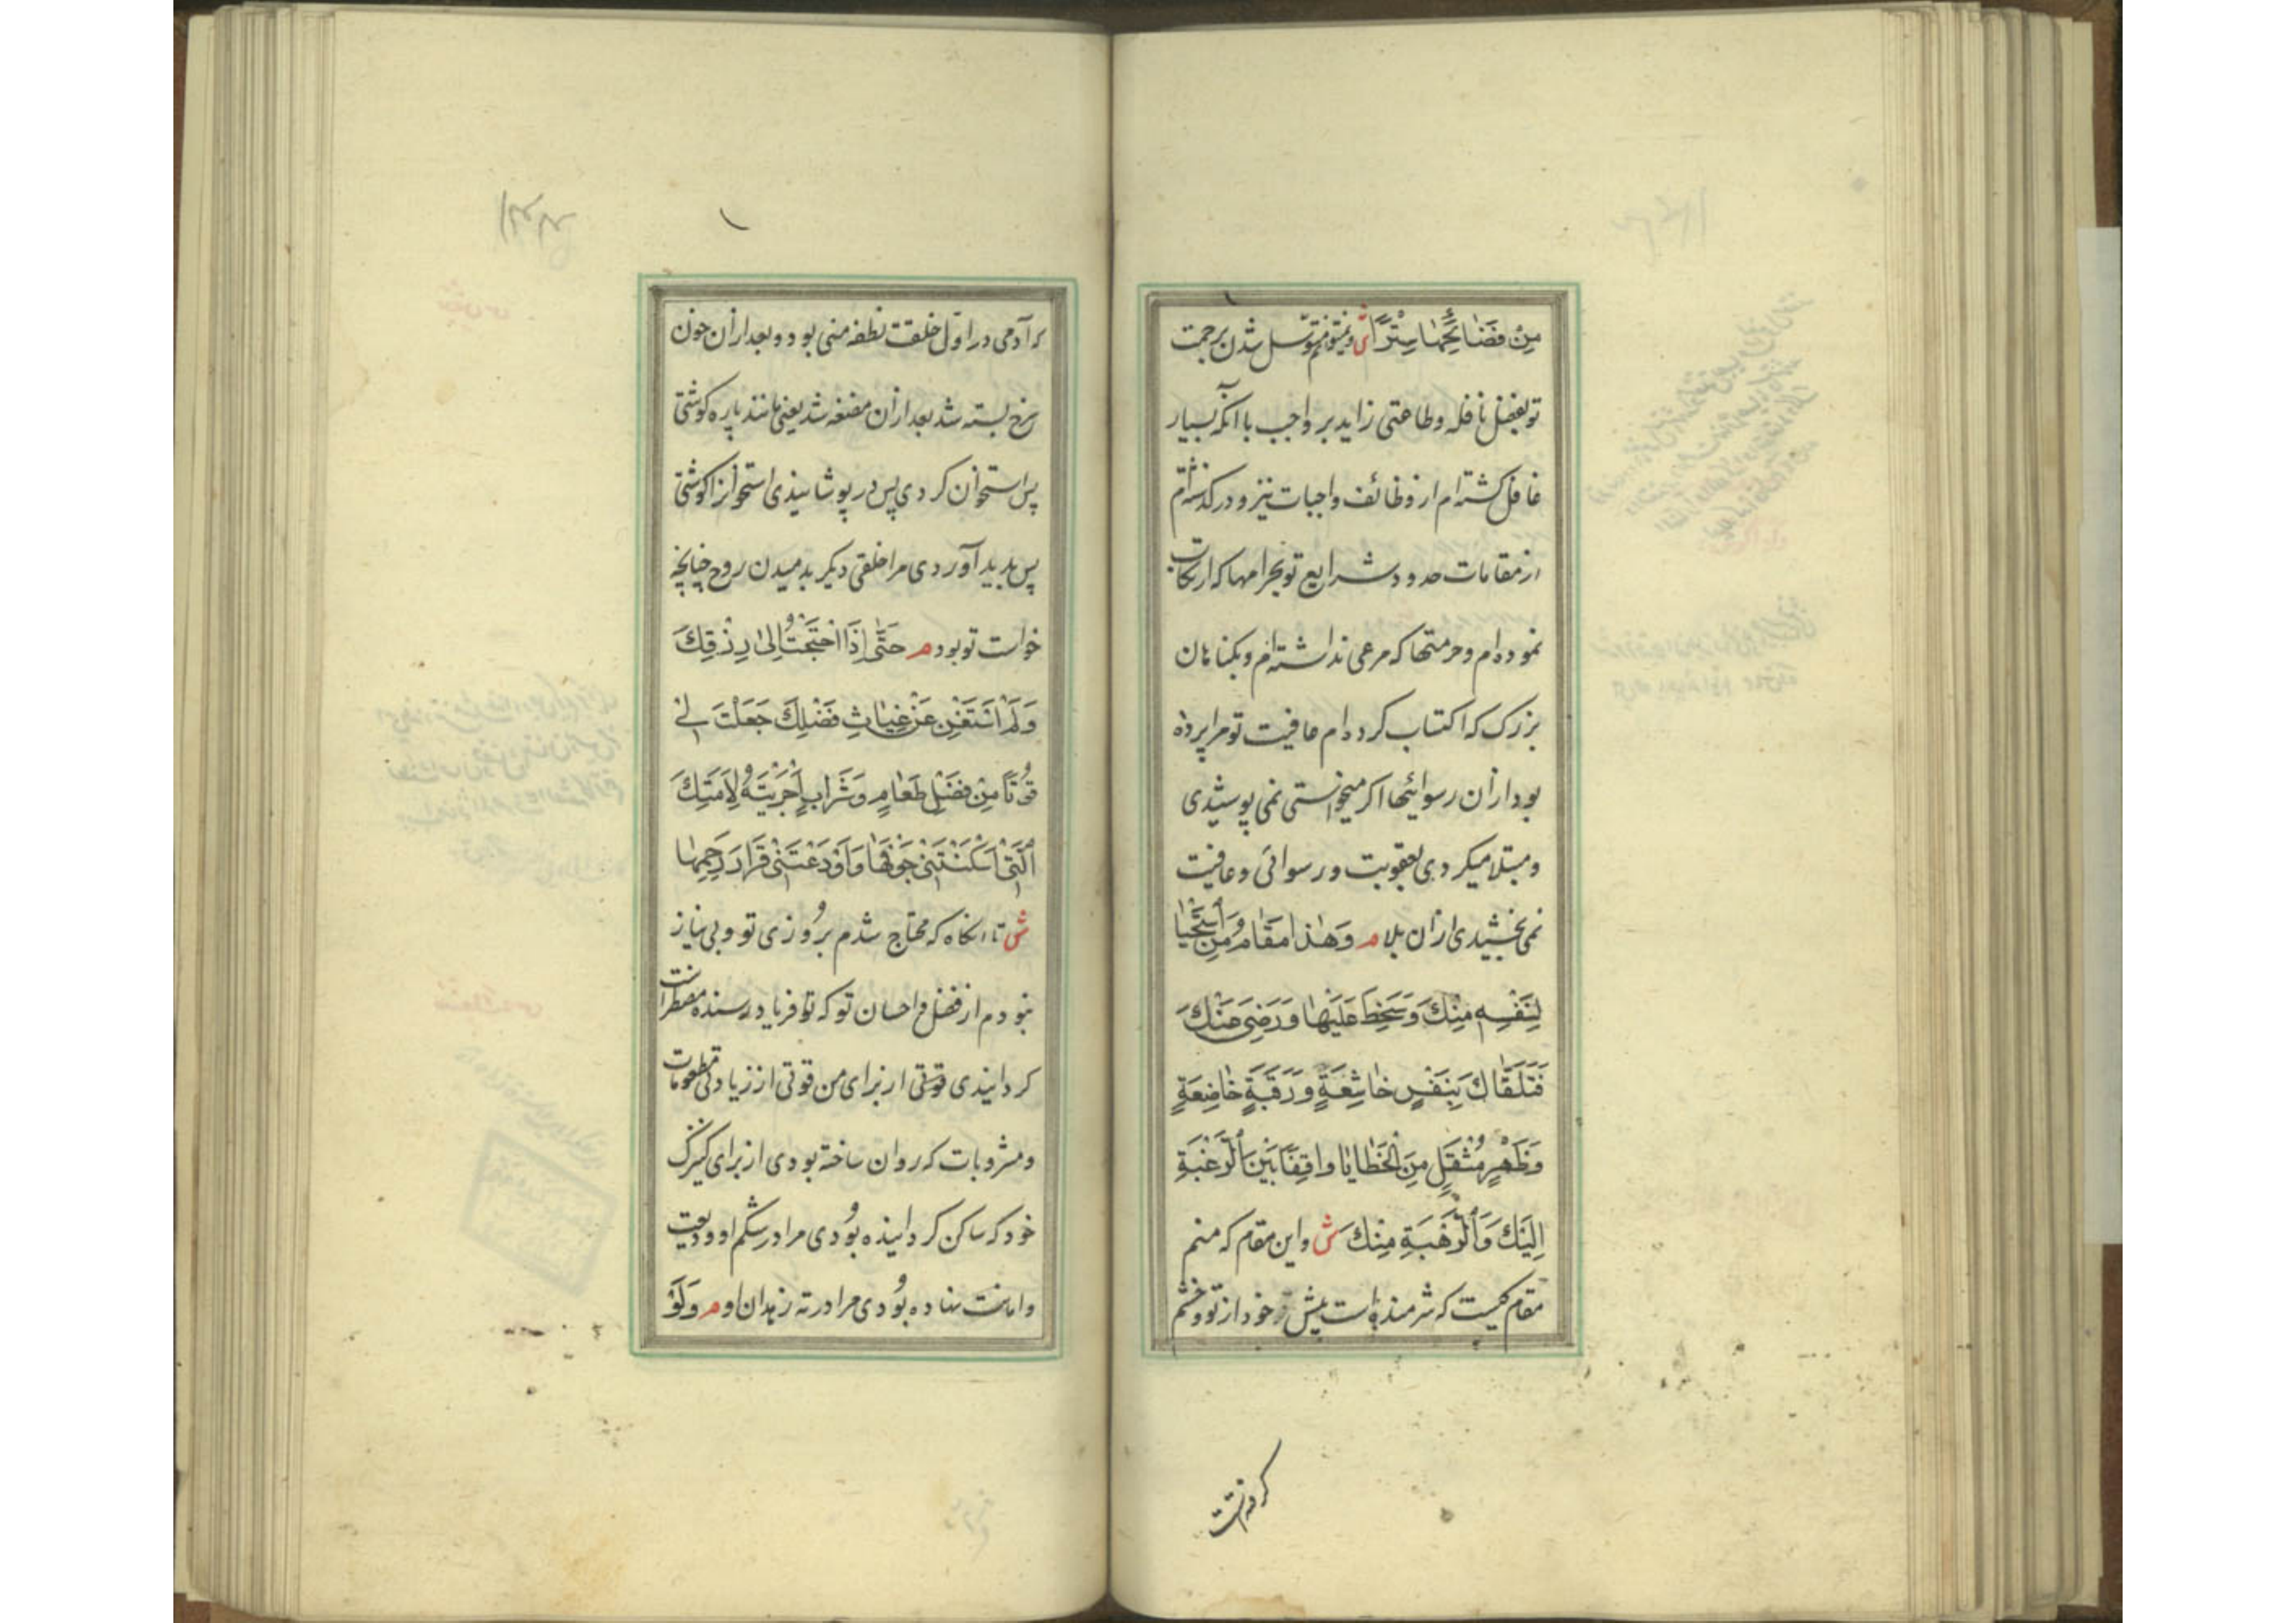 مِنْ فَضَائِحِهَا سِتْرًا ش و نیستم متوسل شدن برحمت
تو بفضل نافله و طاعتی زاید بر واجب با آنکه بسیار
غافل کشته‌ام از وظائف واجبات نیز و در کذشته‌ام
از مقامات حدود شرایع تو بحرامها که ارتکاب
نموده‌ام و حرمتها که مرعی نداشته‌ام و بکناهان
بزرک که اکتساب کرده‌ام عافیت تو مرا پرده
بود از آن رسوائیها اکر میخواستی نمی پوشیدی
و مبتلا میکردی بعقوبت و رسوائی و عافیت
نمی بخشیدی از آن بلا م وَهٰذَا مَقَامُ مَنِ اسْتَحْيَا
لِنَفْسِهِ مِنْكَ وَسَخِطَ عَلَيْهَا وَرَضِيَ عَنْكَ
فَتَلَقَّاكَ بِنَفْسٍ خَاشِعَةٍ وَرَقَبَةٍ خَاضِعَةٍ
وَظَهْرٍ مُثْقَلٍ مِنَ الْخَطَايَا وَاقِفًا بَيْنَ الرَّغْبَةِ
اِلَيْكَ وَالرَّهْبَةِ مِنْكَ ش و این مقام که منم
مقام کیست که شرمنده است پیش خود از تو و خشم
کرفته است
که آدمی در اوّل خلقت نطفه منی بود و بعد از آن خون
سرخ بسته شد بعد از آن مضغه شد یعنی مانند پاره کوشتی
پس استخوان کردی پس در پوشانیدی استخوانرا کوشتی
پس پدید آوردی مرا خلقی دیکر بدمیدن روح چنانچه
خواست تو بود م حَتّٰى اِذَا احْتَجْتُ اِلٰى رِزْقِكَ
وَلَمْ اَسْتَغْنِ عَنْ غِيَاثِ فَضْلِكَ جَعَلْتَ لِي
قُوتًا مِنْ فَضْلِ طَعَامٍ وَشَرَابٍ اَجْرَيْتَهُ لِاَمَتِكَ
الَّتِي اَسْكَنْتَنِي جَوْفَهَا وَاَوْدَعْتَنِي قَرَارَ رَحِمِهَا
ش تا آنکاه که محتاج شدم بروزی تو و بی نیاز
نبودم از فضل و احسان تو که تو فریاد رسنده مضطرانست
کردانیدی قوتی از برای من قوتی از زیادتی مطعومات
و مشروبات که روان ساخته بودی از برای کنیزک
خود که ساکن کردانیده بودی مرا در شکم او و ودیعت
و امانت نهاده بودی مرا در ته زهدان او م وَلَوْ